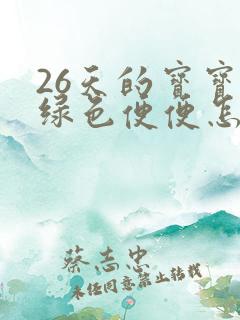 26天的宝宝
绿色便便怎
蔡志忠
未经同意禁止转载